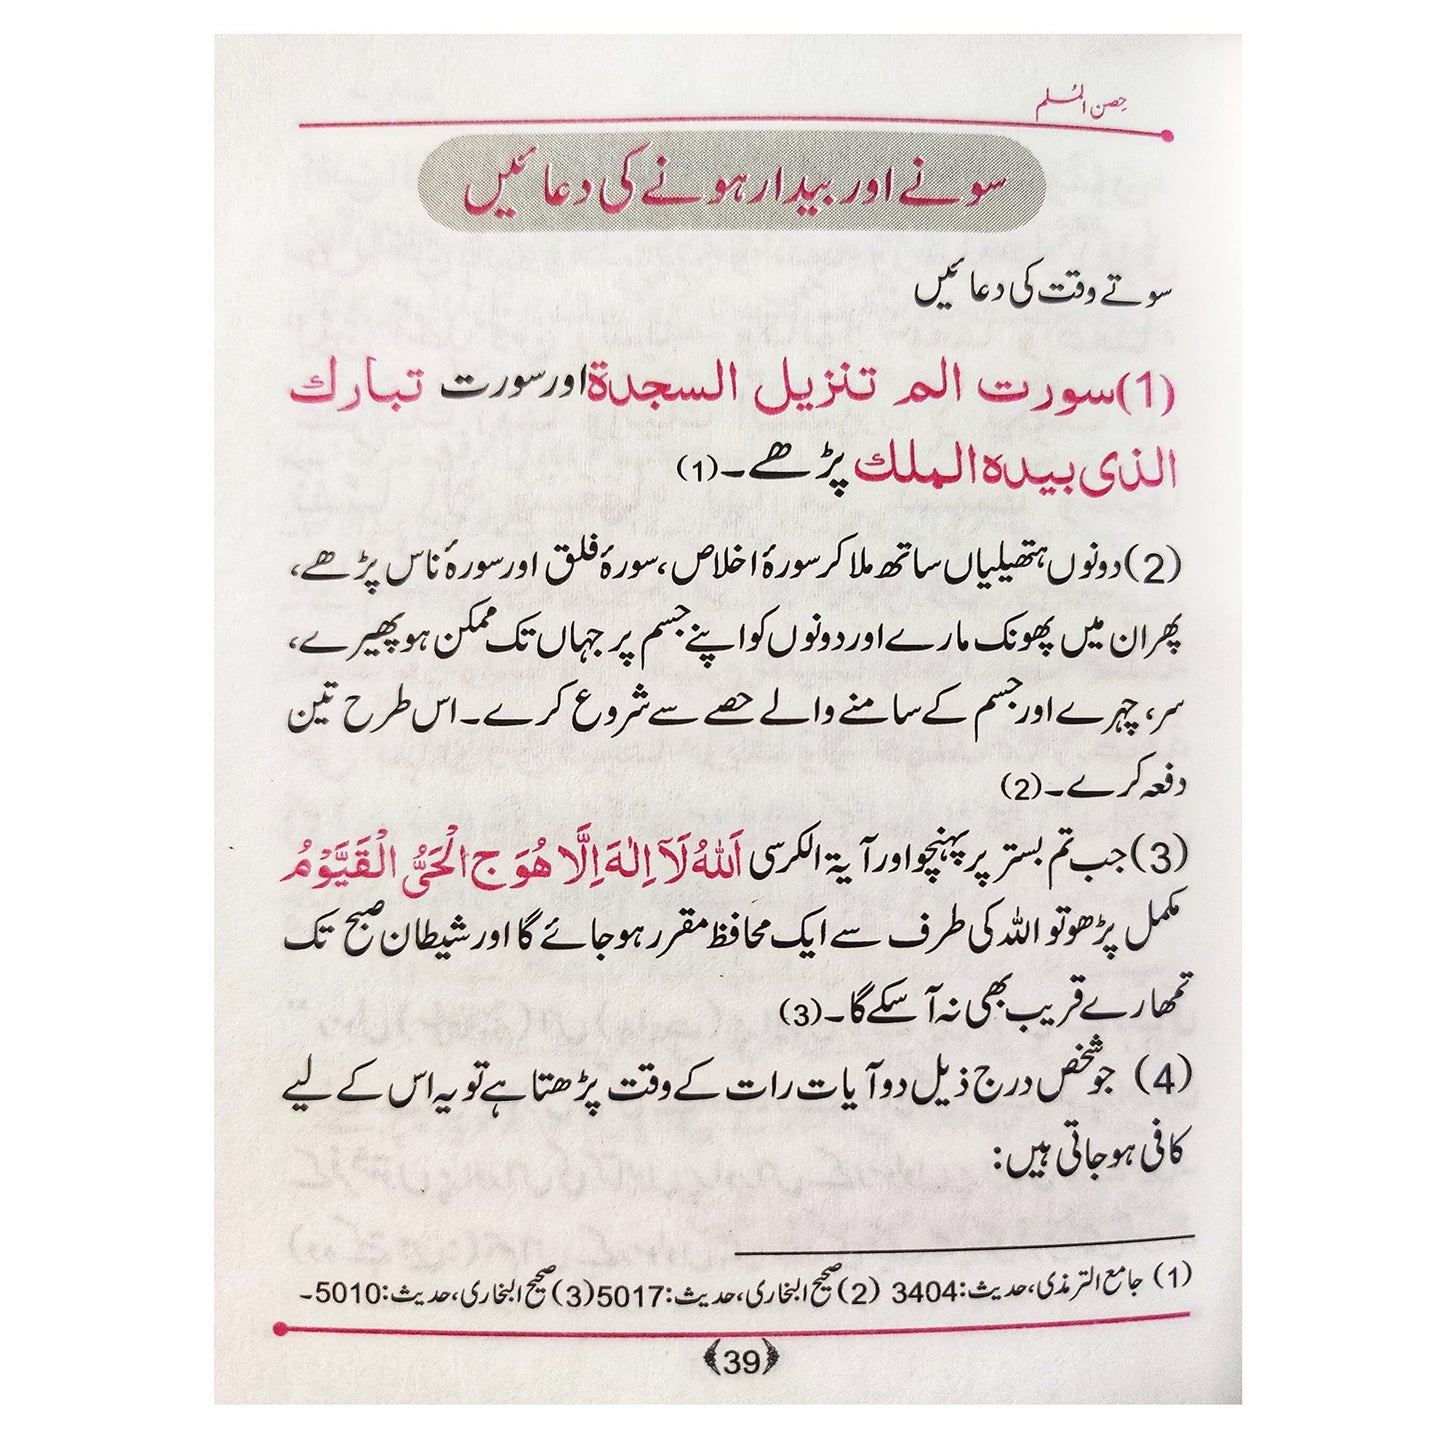 حِصن المُسلم
سونے اور بیدار ہونے کی دعائیں
سوتے وقت کی دعائیں
(1) سورت الم تنزیل السجدۃ اور سورت تبارك
الذی بیدہ الملك پڑھے۔(1)
(2) دونوں ہتھیلیاں ساتھ ملا کر سورۂ اخلاص، سورۂ فلق اور سورۂ ناس پڑھے،
پھر ان میں پھونک مارے اور دونوں کو اپنے جسم پر جہاں تک ممکن ہو پھیرے،
سر، چہرے اور جسم کے سامنے والے حصے سے شروع کرے۔ اس طرح تین
دفعہ کرے۔(2)
(3) جب تم بستر پر پہنچو اور آیۃ الکرسی اَللّٰهُ لَآ اِلٰهَ اِلَّا هُوَ ج الْحَیُّ الْقَیُّوْمُ
مکمل پڑھو تو اللہ کی طرف سے ایک محافظ مقرر ہو جائے گا اور شیطان صبح تک
تمھارے قریب بھی نہ آ سکے گا۔(3)
(4) جو شخص درج ذیل دو آیات رات کے وقت پڑھتا ہے تو یہ اس کے لیے
کافی ہو جاتی ہیں:
(1) جامع الترمذی، حدیث:3404 (2) صحیح البخاری، حدیث:5017 (3) صحیح البخاری، حدیث:5010۔
39